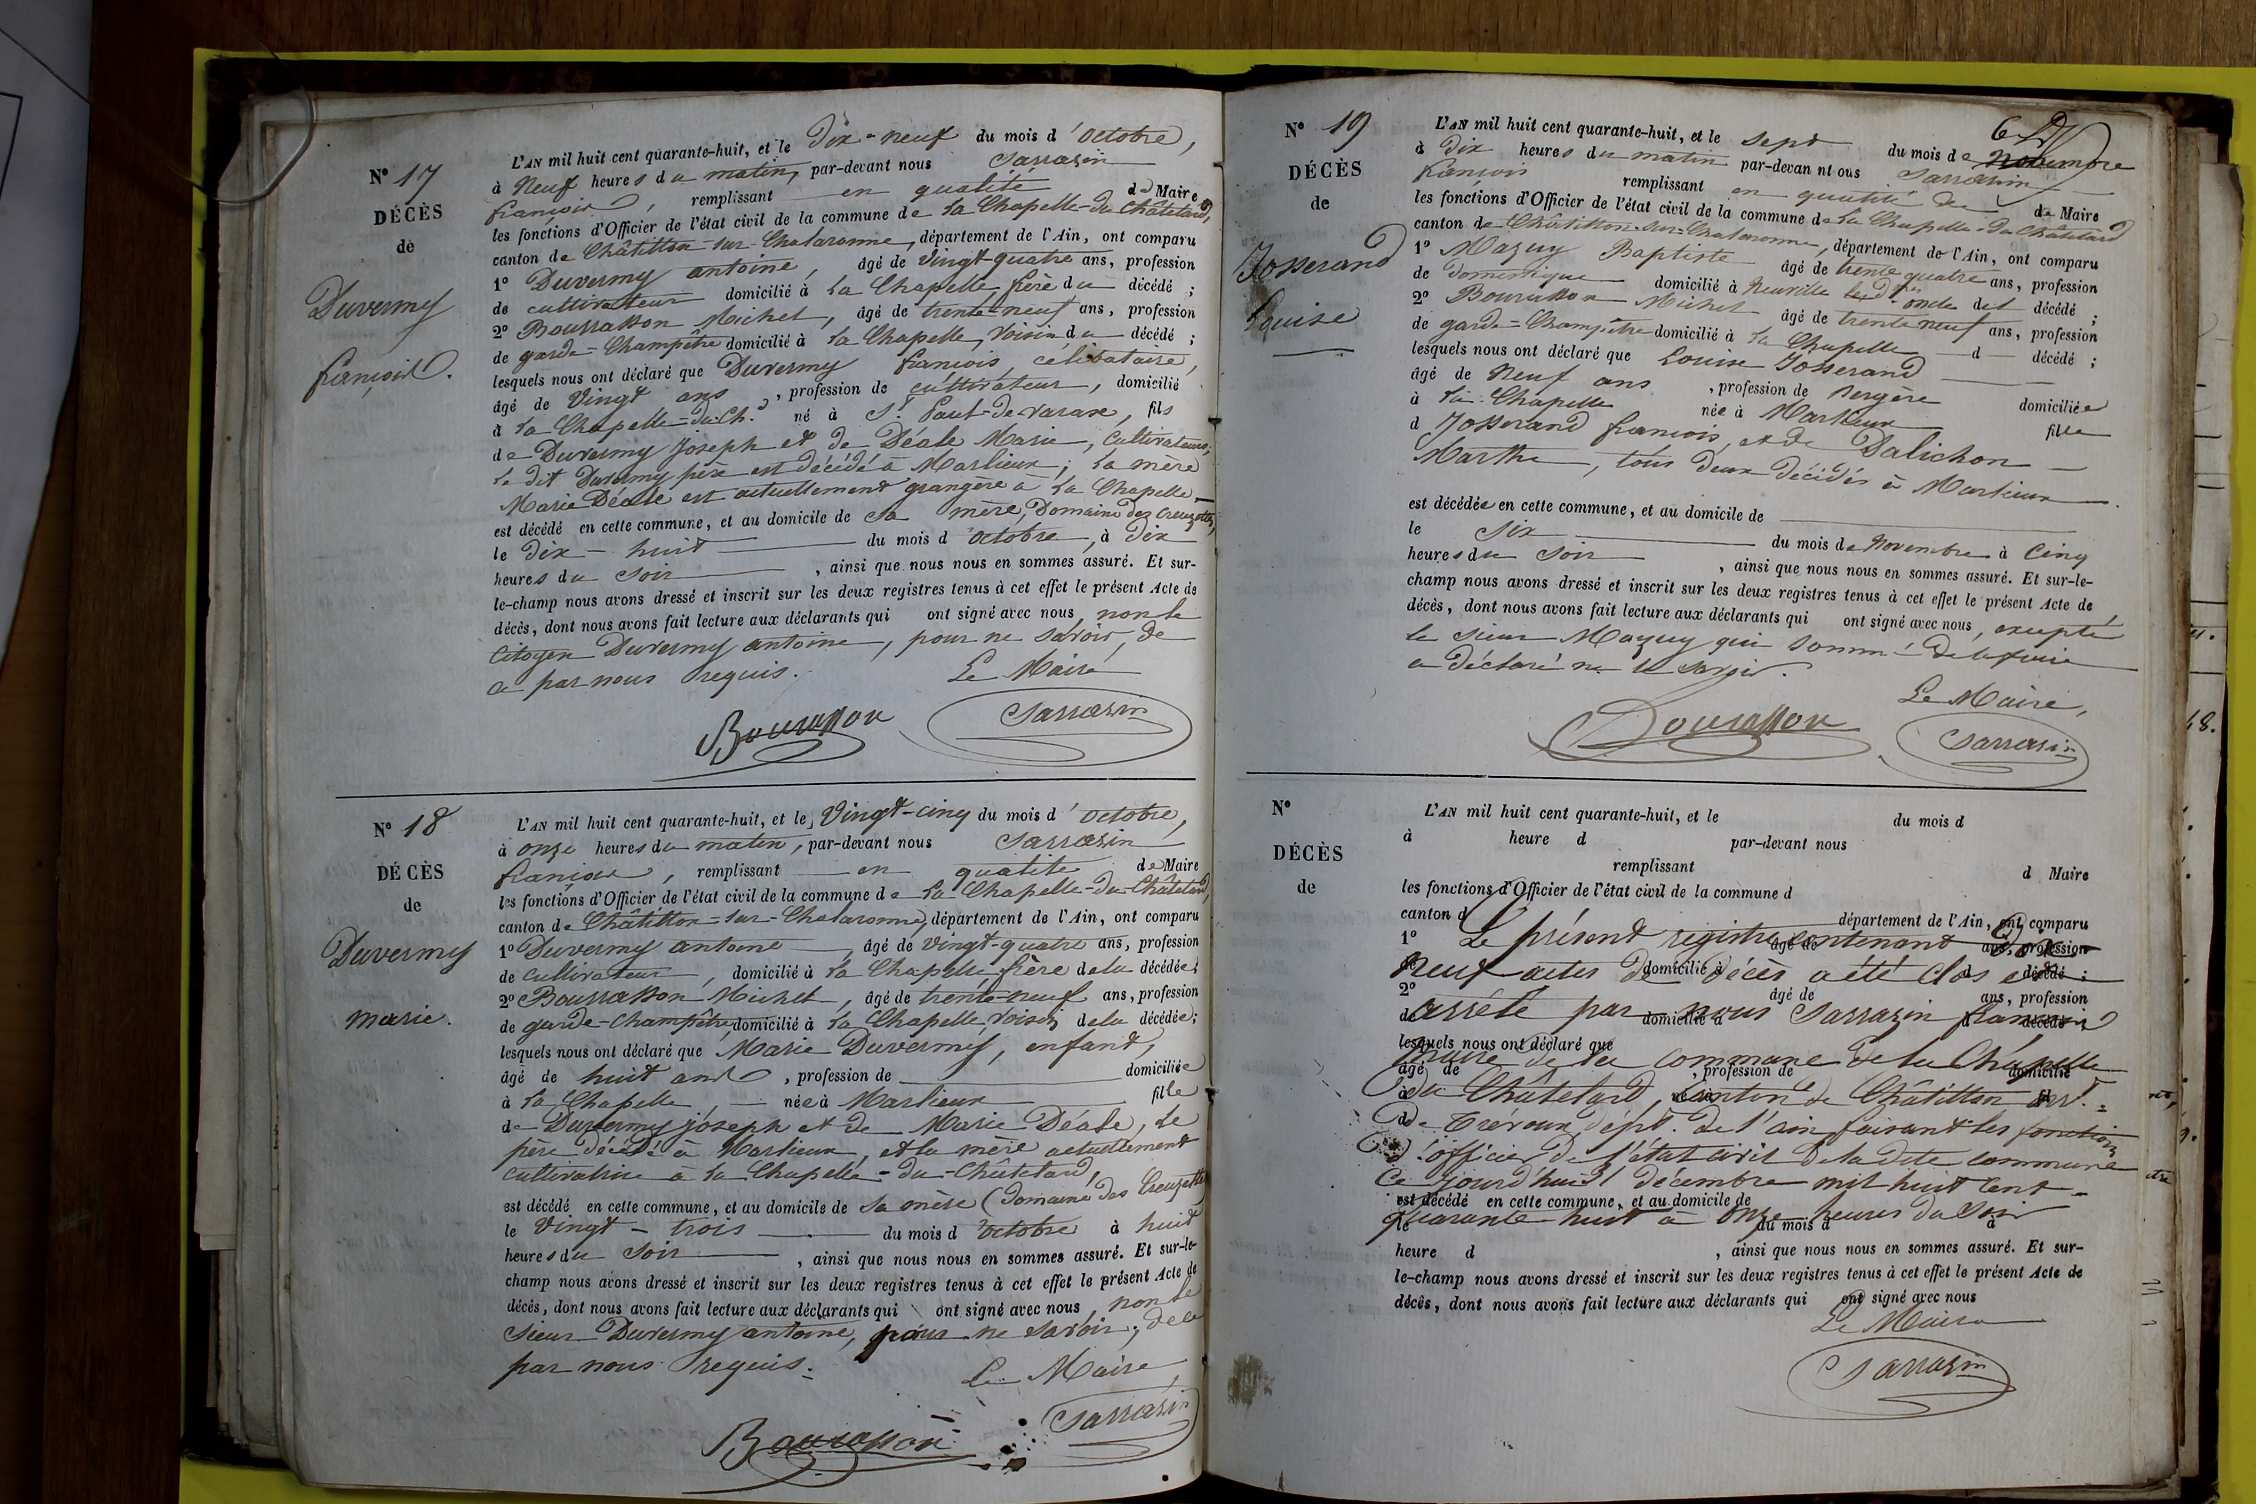 N° 17
DÉCÈS
de
Duvermy
françois.
L'AN mil huit cent quarante-huit, et le Dix-neuf du mois d'octobre,
à Neuf heures du matin, par-devant nous Sarrazin
françois, remplissant en qualité de Maire
les fonctions d'Officier de l'état civil de la commune de La Chapelle-du-Châtelard,
canton de Châtillon-sur-Chalaronne, département de l'Ain, ont comparu
1° Duvermy antoine, âgé de vingt-quatre ans, profession
de cultivateur domicilié à La Chapelle frère du décédé ;
2° Bourrasson Michel, âgé de trente-neuf ans, profession
de garde-Champêtre domicilié à La Chapelle, Voisin du décédé ;
lesquels nous ont déclaré que Duvermy françois, celibataire,
âgé de Vingt ans, profession de cultivateur, domicilié
à La Chapelle-du-Ch.d né à St. Paul-de-Varax, fils
de Duvermy Joseph et de Déale Marie, Cultivateurs,
Le dit Duvermy père est décédé à Marlieux ; La mère
Marie Déale est actuellement grangère à La Chapelle
est décédé en cette commune, et au domicile de sa mère, Domaine des Creuzettes,
le Dix-huit du mois d'octobre, à Dix
heures du Soir, ainsi que nous nous en sommes assuré. Et sur-
le-champ nous avons dressé et inscrit sur les deux registres tenus à cet effet le présent Acte de
décès, dont nous avons fait lecture aux déclarants qui ont signé avec nous, non le
Citoyen Duvermy antoine, pour ne savoir, de
ce par nous requis.
Le Maire
Bourrasson
Sarrazin
N° 18
DÉCÈS
de
Duvermy
marie.
L'AN mil huit cent quarante-huit, et le Vingt-cinq du mois d'octobre,
à onze heures du matin, par-devant nous Sarrazin
françois, remplissant en qualité de Maire
les fonctions d'Officier de l'état civil de la commune de La Chapelle-du-Châtelard,
canton de Châtillon-sur-Chalaronne, département de l'Ain, ont comparu
1° Duvermy antoine, âgé de vingt-quatre ans, profession
de cultivateur, domicilié à La Chapelle frère de la décédée ;
2° Bourrasson Michel, âgé de trente-neuf ans, profession
de garde-champêtre domicilié à La Chapelle, Voisin de la décédée ;
lesquels nous ont déclaré que Marie Duvermy, enfant,
âgé de huit ans, profession de domiciliée
à La Chapelle, née à Marlieux fille
de Duvermy joseph et de Marie Déale, Le
père décédé à Marlieux, et la mère actuellement
cultivatrice à La Chapelle-du-Châtelard,
est décédé en cette commune, et au domicile de Sa mère (Domaine des Creuzettes)
le Vingt-trois du mois d'octobre à huit
heures du Soir, ainsi que nous nous en sommes assuré. Et sur-le-
champ nous avons dressé et inscrit sur les deux registres tenus à cet effet le présent Acte de
décès, dont nous avons fait lecture aux déclarants qui ont signé avec nous, non le
Sieur Duvermy antoine, pour ne savoir ; de ce
par nous requis.
Le Maire
Bourrasson
Sarrazin
N° 19
DÉCÈS
de
Josserand
Louise
L'AN mil huit cent quarante-huit, et le sept du mois de Novembre
à Dix heures du matin par-devan nt ous Sarrazin
françois remplissant en qualité de Maire
les fonctions d'Officier de l'état civil de la commune de La Chapelle-du-Châtelard
canton de Châtillon-sur-Chalaronne, département de l'Ain, ont comparu
1° Mazuy Baptiste âgé de trente quatre ans, profession
de Domestique domicilié à Neuville les Dmes oncle del décédé ;
2° Bourrasson Michel âgé de trente neuf ans, profession
de garde-Champêtre domicilié à La Chapelle d décédé ;
lesquels nous ont déclaré que Louise Josserand
âgé de Neuf ans, profession de Bergère domiciliée
à La Chapelle née à Marlieux fille
d Josserand françois, et de Dalichon
Marthe, tous Deux Décidés à Marlieux
est décédée en cette commune, et au domicile de
le Six du mois de Novembre à Cinq
heures du Soir, ainsi que nous nous en sommes assuré. Et sur-le-
champ nous avons dressé et inscrit sur les deux registres tenus à cet effet le présent Acte de
décès, dont nous avons fait lecture aux déclarants qui ont signé avec nous, excepté
le sieur Mazuy qui Sommé de le faire
a Déclaré ne le savoir.
Le Maire,
Bourrasson
Sarrazin
N°
DÉCÈS
de
L'AN mil huit cent quarante-huit, et le du mois d
à heure d par-devant nous
remplissant d Maire
les fonctions d'Officier de l'état civil de la commune d
canton d département de l'Ain, ont comparu
1° âgé de ans, profession
Le présent registre contenant Dix
de domicilié à d décédé ;
Neuf actes De Décès a été Clos et
2° âgé de ans, profession
arrêté par nous Sarrazin françois
de domicilié à d décédé ;
lesquels nous ont déclaré que
Maire De La Commune de La Chapelle
âgé de, profession de domicilié
du Châtelard, Canton de Châtillon arr.
De Trévoux, Dépt. De l'ain faisant les fonctions
d'officier De l'état civil De la Dite Commune
Ce jourd'hui 31 décembre mil huit Cent
est décédé en cette commune, et au domicile de
quarante huit à onze heures Du Soir
le du mois d à
heure d, ainsi que nous nous en sommes assuré. Et sur-
le-champ nous avons dressé et inscrit sur les deux registres tenus à cet effet le présent Acte de
décès, dont nous avons fait lecture aux déclarants qui ont signé avec nous
Le Maire
Sarrazin